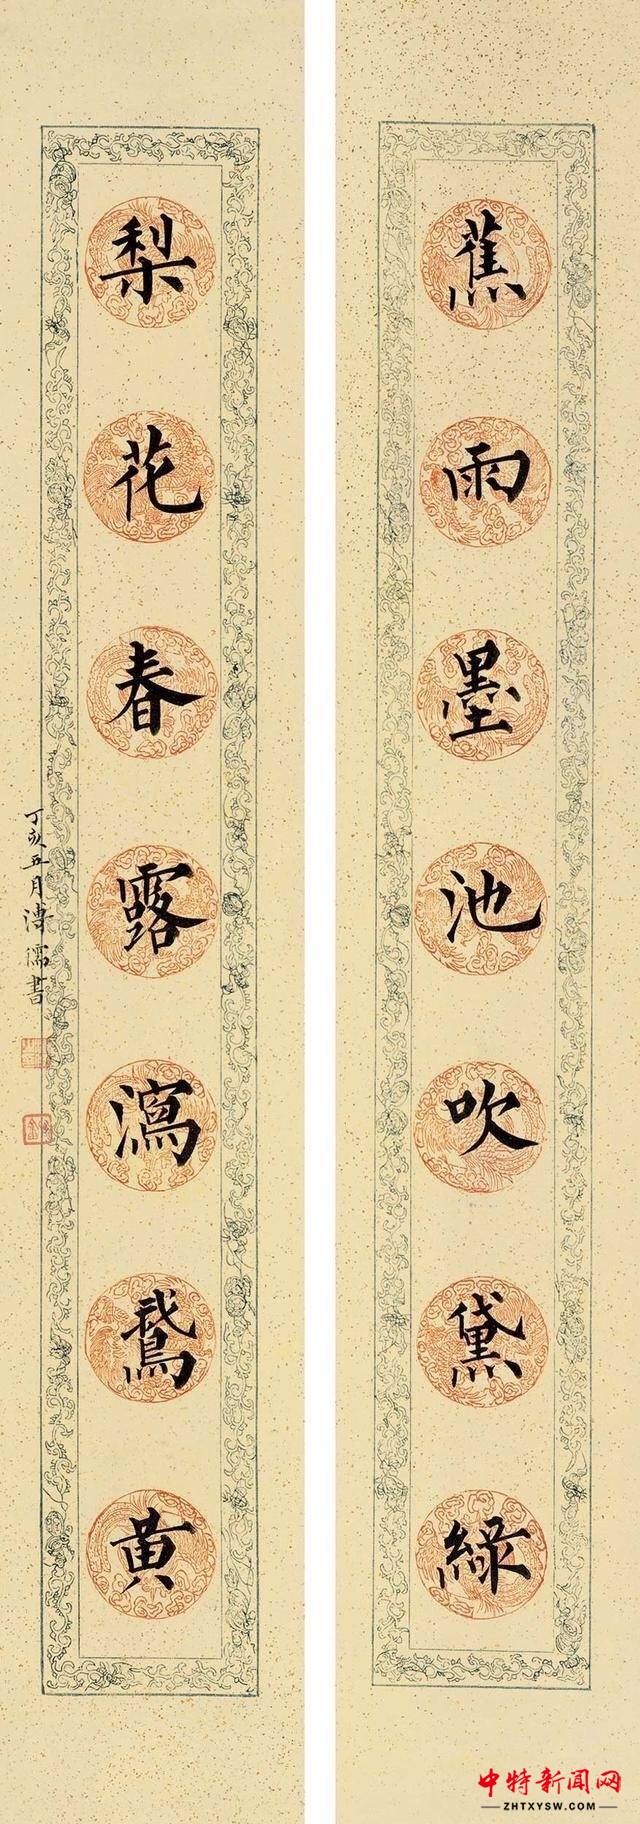 蕉雨墨池吹黛綠
梨花春露瀉鵞黄
丁亥五月溥儒書
中特新闻网
ZHTXYSW.COM